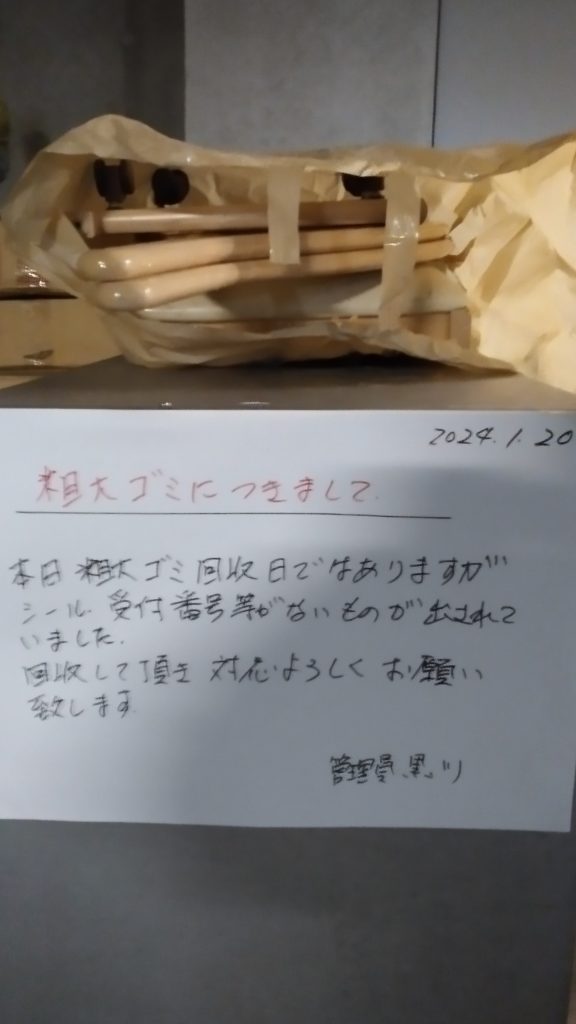 2024.1.20
粗大ゴミにつきまして.
本日 粗大ゴミ回収日ではありますが
シール. 受付番号等がないものが出されて
いました.
回収して頂き 対応よろしくお願い
致します.
管理員 黒川